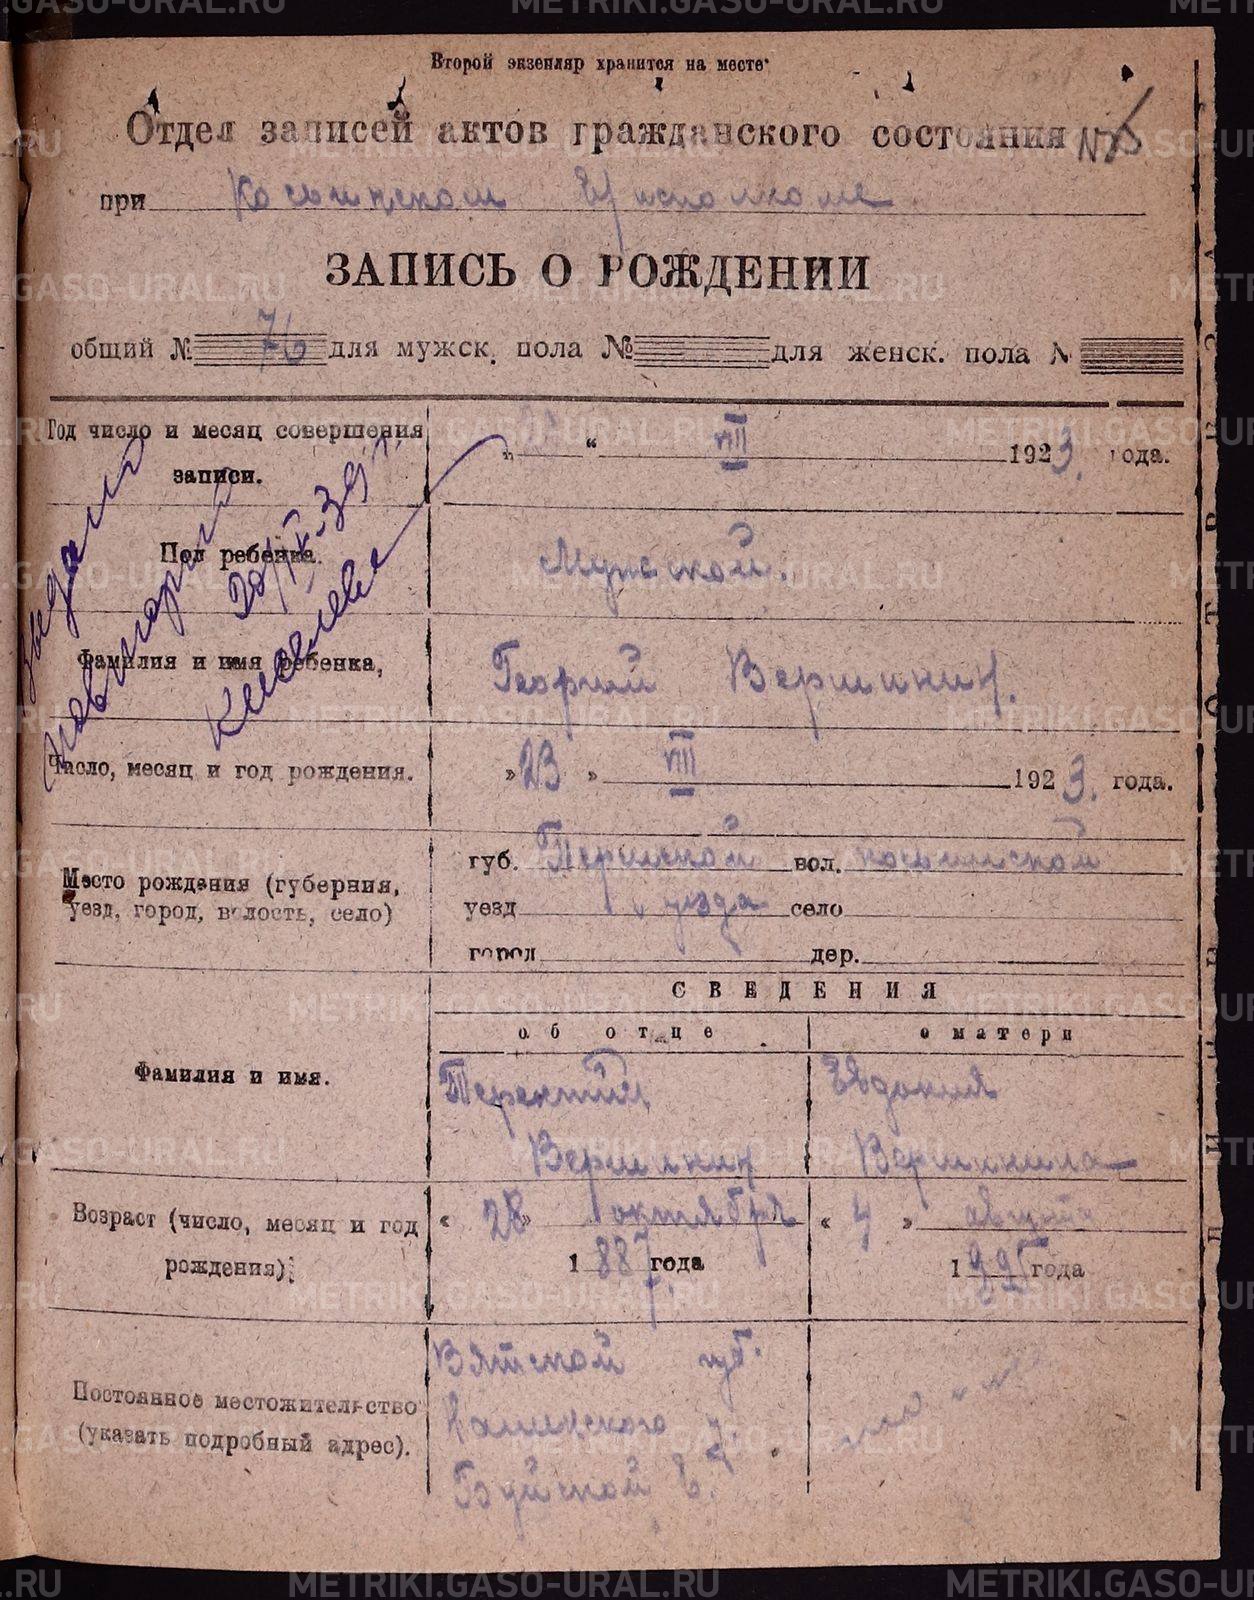 Второй экземпляр хранится на месте
Отдел записей актов гражданского состояния
при Косьинском
ЗАПИСЬ О РОЖДЕНИИ
общий № 76 для мужск. пола № для женск. пола №
Год число и месяц совершения записи. " " VIII 1923. года.
Пол ребенка. Мужской.
Фамилия и имя ребенка, Георгий Вершинин.
Число, месяц и год рождения. "23" VIII 1923. года.
Место рождения (губерния, уезд, город, волость, село)
губ. Пермской вол. косьинской
уезд уезда село
город дер.
СВЕДЕНИЯ
об отце о матери
Фамилия и имя. Терентий Евдокия
Вершинин Вершинина
Возраст (число, месяц и год рождения). "28" октября 1887 года "4" августа 1 года
Постоянное местожительство (указать подробный адрес).
Вятской губ.
у.
в.
выдано
повторно
20/IX-39 г.
Киселева
METRIKI.GASO-URAL.RU